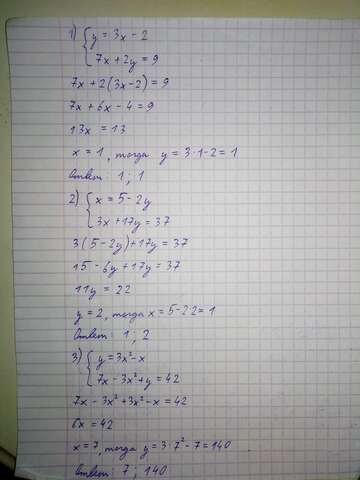 1) { y = 3x - 2
7x + 2y = 9
7x + 2(3x - 2) = 9
7x + 6x - 4 = 9
13x = 13
x = 1, тогда y = 3·1 - 2 = 1
Ответ: 1; 1
2) { x = 5 - 2y
3x + 17y = 37
3(5 - 2y) + 17y = 37
15 - 6y + 17y = 37
11y = 22
y = 2, тогда x = 5 - 2·2 = 1
Ответ: 1; 2
3) { y = 3x² - x
7x - 3x² + y = 42
7x - 3x² + 3x² - x = 42
6x = 42
x = 7, тогда y = 3·7² - 7 = 140
Ответ: 7; 140